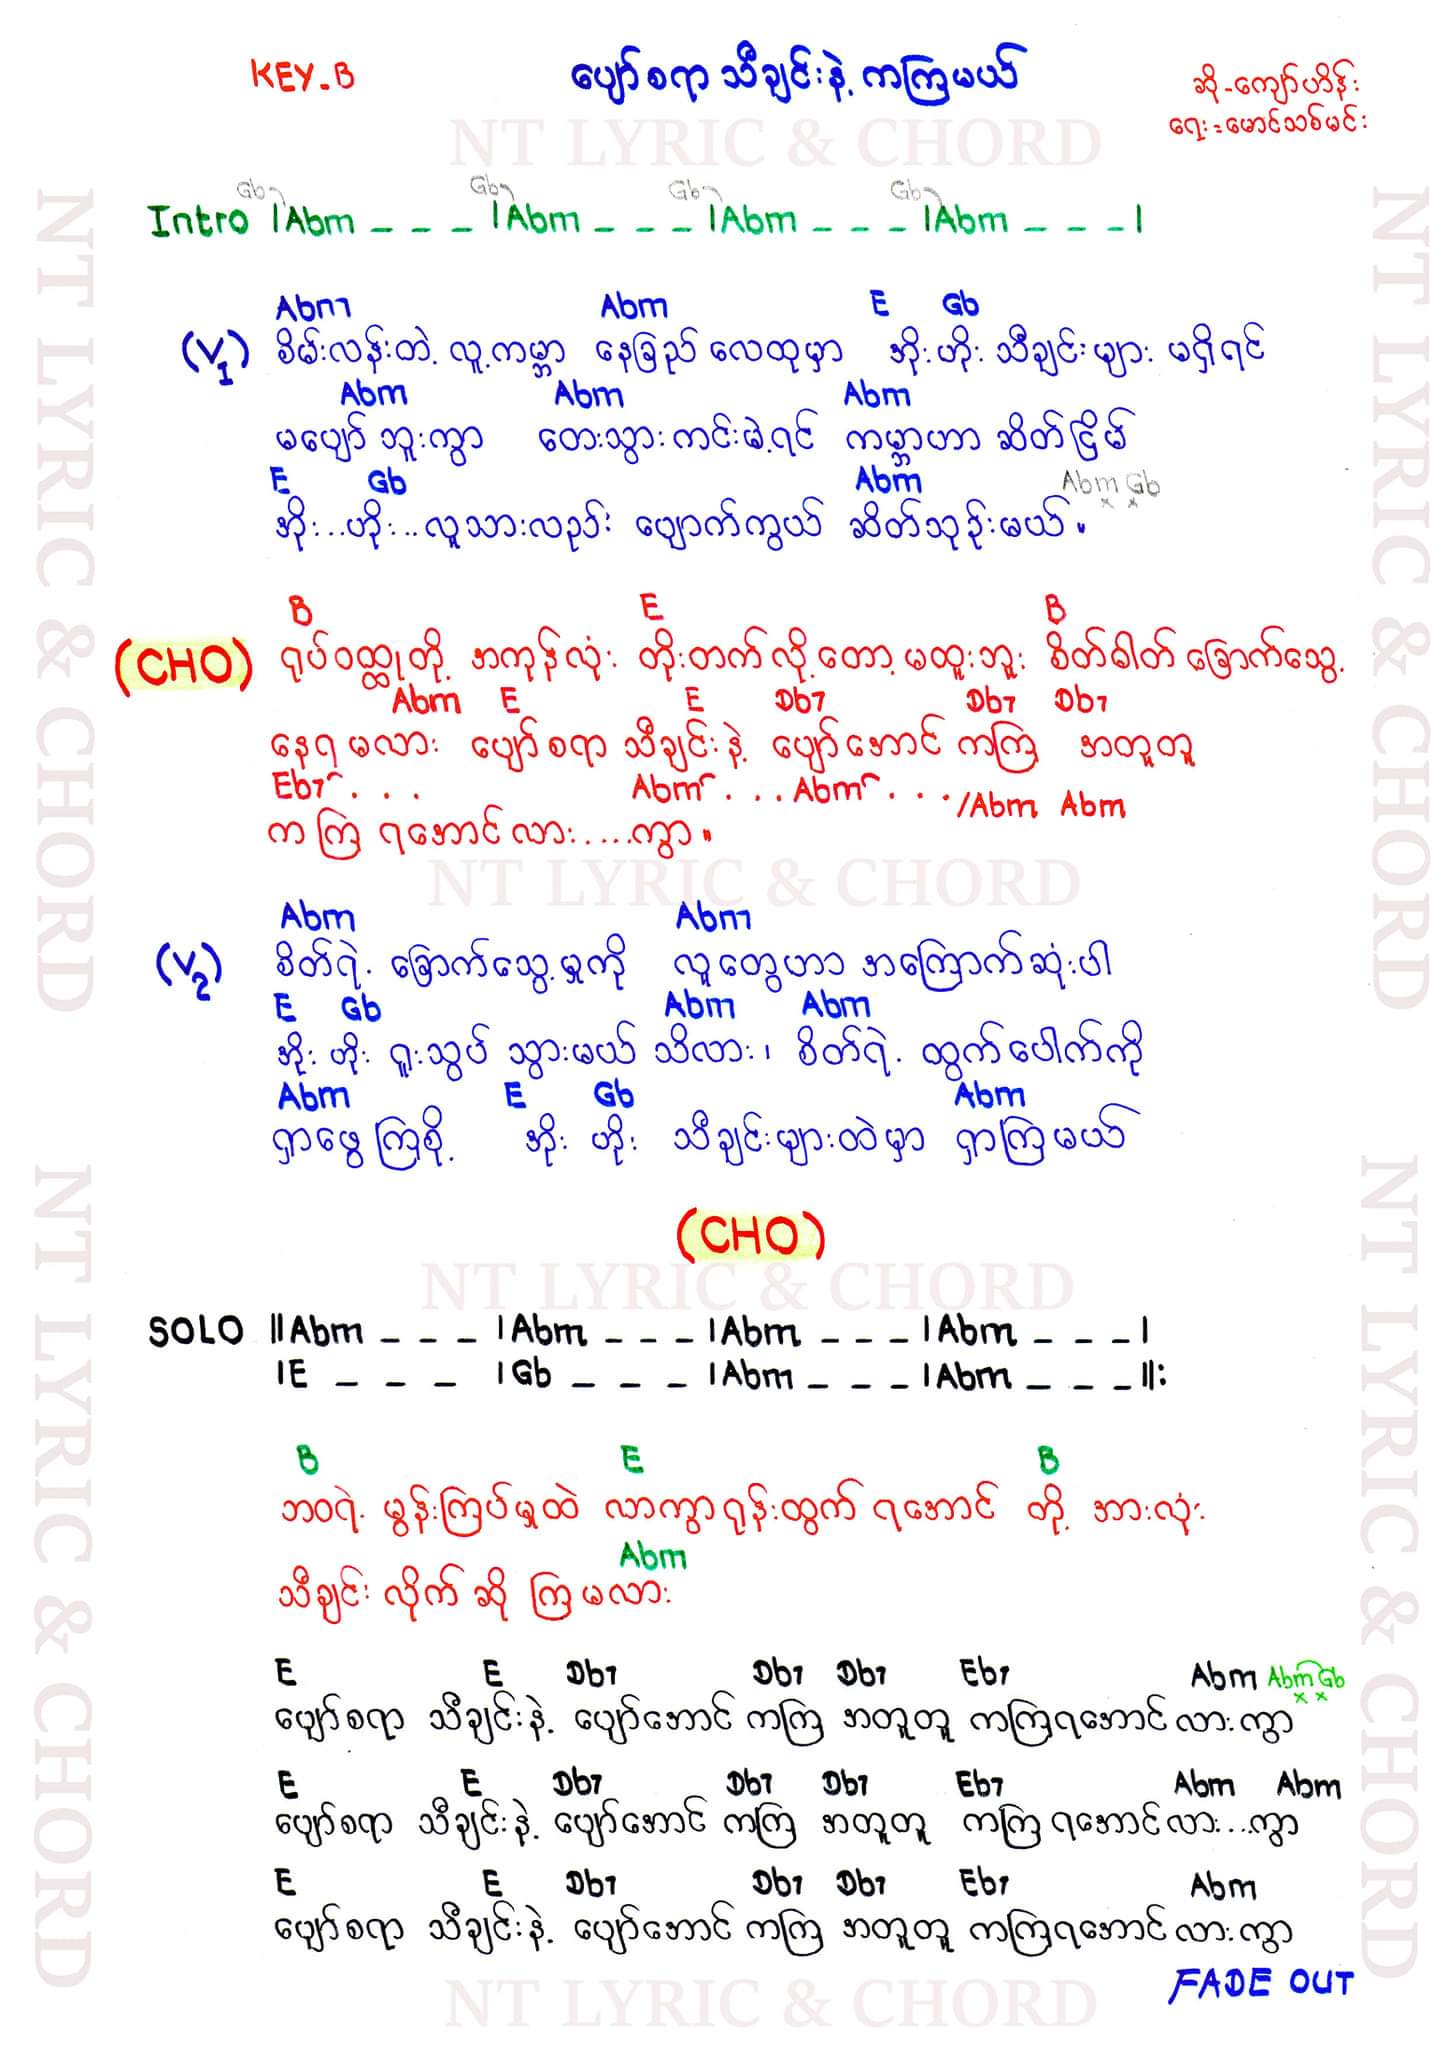 KEY-B ပျော်စရာ သီချင်းနဲ့ ကကြမယ် ဆို-ကျော်ဟိန်း
ရေး-မောင်သစ်မင်း
NT LYRIC & CHORD
Gb7 Gb7 Gb7 Gb7
Intro |Abm _ _ _ |Abm _ _ _ |Abm _ _ _ |Abm _ _ _ |
Abm Abm E Gb
(V1) စိမ်းလန်းတဲ့ လူ့ကမ္ဘာ နေခြည် လေထုမှာ အိုး ဟိုး သီချင်းများ မရှိရင်
Abm Abm Abm
မပျော် ဘူးကွာ တေးသွားကင်းမဲ့ရင် ကမ္ဘာဟာ ဆိတ်ငြိမ်
E Gb Abm Abm Gb
x x
အိုး...ဟိုး...လူသားလည်း ပျောက်ကွယ် ဆိတ်သုဉ်းမယ်။
B E B
(CHO) ရုပ်ဝတ္ထုတို့ အကုန်လုံး တိုးတက်လို့တော့ မထူးဘူး စိတ်ဓါတ် ခြောက်သွေ့
Abm E E Db7 Db7 Db7
နေရ မလား ပျော်စရာ သီချင်းနဲ့ ပျော်အောင် ကကြ အတူတူ
Eb7 . . . Abm . . . Abm . . . /Abm Abm
က ကြ ရအောင်လား....ကွာ။
NT LYRIC & CHORD
Abm Abm
(V2) စိတ်ရဲ့ ခြောက်သွေ့မှုကို လူတွေဟာ အကြောက်ဆုံးပါ
E Gb Abm Abm
အိုး ဟိုး ရူးသွပ် သွားမယ် သိလား၊ စိတ်ရဲ့ ထွက်ပေါက်ကို
Abm E Gb Abm
ရှာဖွေ ကြစို့ အိုး ဟိုး သီချင်းများထဲမှာ ရှာကြမယ်
(CHO)
NT LYRIC & CHORD
SOLO ||Abm _ _ _ |Abm _ _ _ |Abm _ _ _ |Abm _ _ _ |
|E _ _ _ |Gb _ _ _ |Abm _ _ _ |Abm _ _ _ ||:
B E B
ဘဝရဲ့ မွန်းကြပ်မှုထဲ လာကွာရုန်းထွက် ရအောင် တို့ အားလုံး
Abm
သီချင်း လိုက် ဆို ကြ မလား
E E Db7 Db7 Db7 Eb7 Abm Abm Gb
x x
ပျော်စရာ သီချင်းနဲ့ ပျော်အောင် ကကြ အတူတူ ကကြရအောင် လားကွာ
E E Db7 Db7 Db7 Eb7 Abm Abm
ပျော်စရာ သီချင်းနဲ့ ပျော်အောင် ကကြ အတူတူ ကကြ ရအောင်လား...ကွာ
E E Db7 Db7 Db7 Eb7 Abm
ပျော်စရာ သီချင်းနဲ့ ပျော်အောင် ကကြ အတူတူ ကကြရအောင် လားကွာ
FADE OUT
NT LYRIC & CHORD
NT LYRIC & CHORD
NT LYRIC & CHORD
NT LYRIC & CHORD
NT LYRIC & CHORD